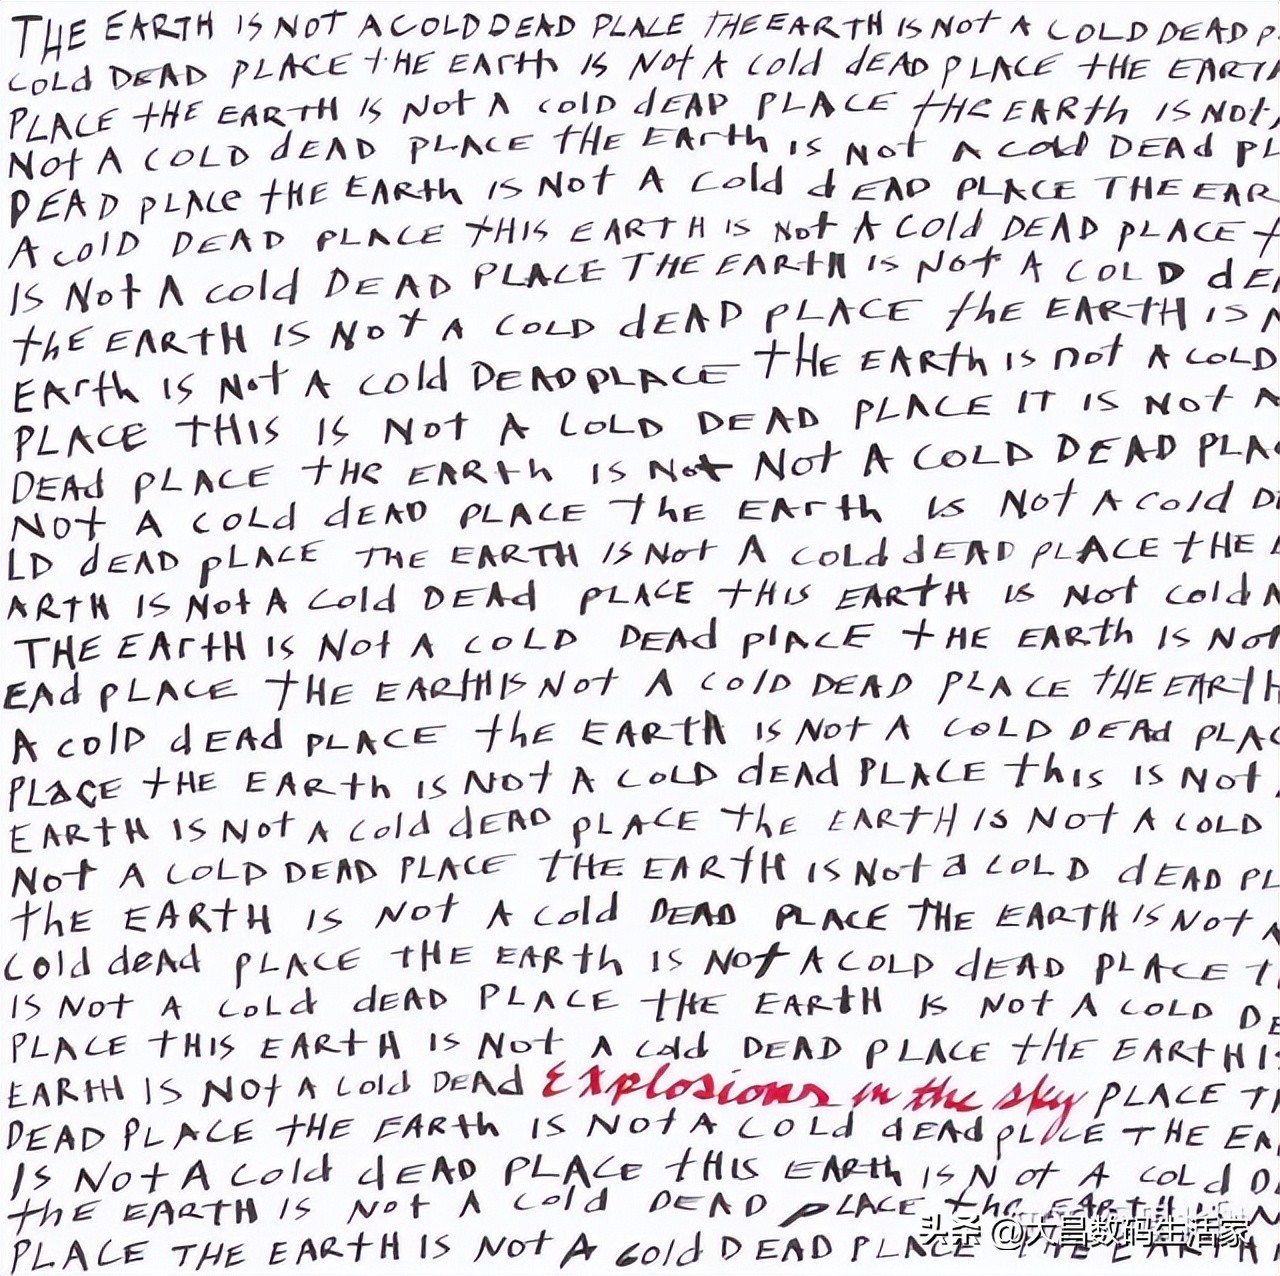 THE EARTH IS NOT A COLD DEAD PLACE THE EARTH IS NOT A COLD DEAD P
COLd DEAD PLACE tHE EArth IS Not A cold dEAD PLACE tHE EARTH
PLACE tHE EARTH IS Not A colD dEAD PLACE tHE EARth IS Not
Not A COLD dEAD PLACE tHE EArth is Not A cold DEAd PL
DEAD pLAce tHE EARth IS Not A cold dEAD PLACE THE EAR
A colD DEAD PLACE tHIS EARTH IS Not A COld DEAD pLACE t
IS Not A cold DEAD PLACE THE EARtH IS Not A COLD dEA
thE EARtH IS Not A COLD dEAD PLACE thE EARTH IS N
EArth IS Not A cold DEAD PLACE tHE EARth IS not A COLD
PLACE tHIS IS Not A COLD DEAD PLACE IT IS Not A
DEAd PLACE tHE EARth IS Not Not A COLD DEAD PLAC
Not A COLd dEAD PLACE thE EArth IS Not A cold D
LD dEAD pLACE THE EARTH IS Not A COLd dEAD PLACE tHE
ARTH IS Not A Cold DEAd PLACE tHIS EARtH IS Not cold A
THE EArtH IS Not A COLD DEAd plACE tHE EARth IS Not
EAd PLACE tHE EARtH IS Not A ColD DEAD PLACE tHE EARTH
A colD dEAd PLACE thE EARTh IS Not A COLD DEAd PLAC
PLaCE tHE EARth IS Not A COLD dEAd PLACE this IS Not
EARtH IS Not A Cold dEAD pLACE thE EARTH IS Not A COLD
Not A COLD DEAD PLACE tHE EARtH IS Not a COLD dEAD PL
thE EARtH IS Not A Cold DEAD PLACE THE EARTH IS Not A
Cold deAd pLACE tHE EARth IS Not A COLD dEAD PLACE t
IS Not A CoLd dEAD PLACE tHE EARtH IS Not A COLD DE
PLACE tHIS EARtH IS Not A cold DEAD PLACE tHE EARtH I
EARtH IS Not A Cold DEAd Explosions in the sky PLACE T
DEAD PLACE tHE EARth IS Not A COLd dEAd pLACE THE EA
IS Not A Cold dEAD PLACE tHIS EARth IS Not A COLd D
thE EARtH IS Not A Cold DEAD pLACE the EARTH IS N
PLACE THE EARtH IS Not A Cold DEAD PLACE THE EARTH
头条 @大昌数码生活家